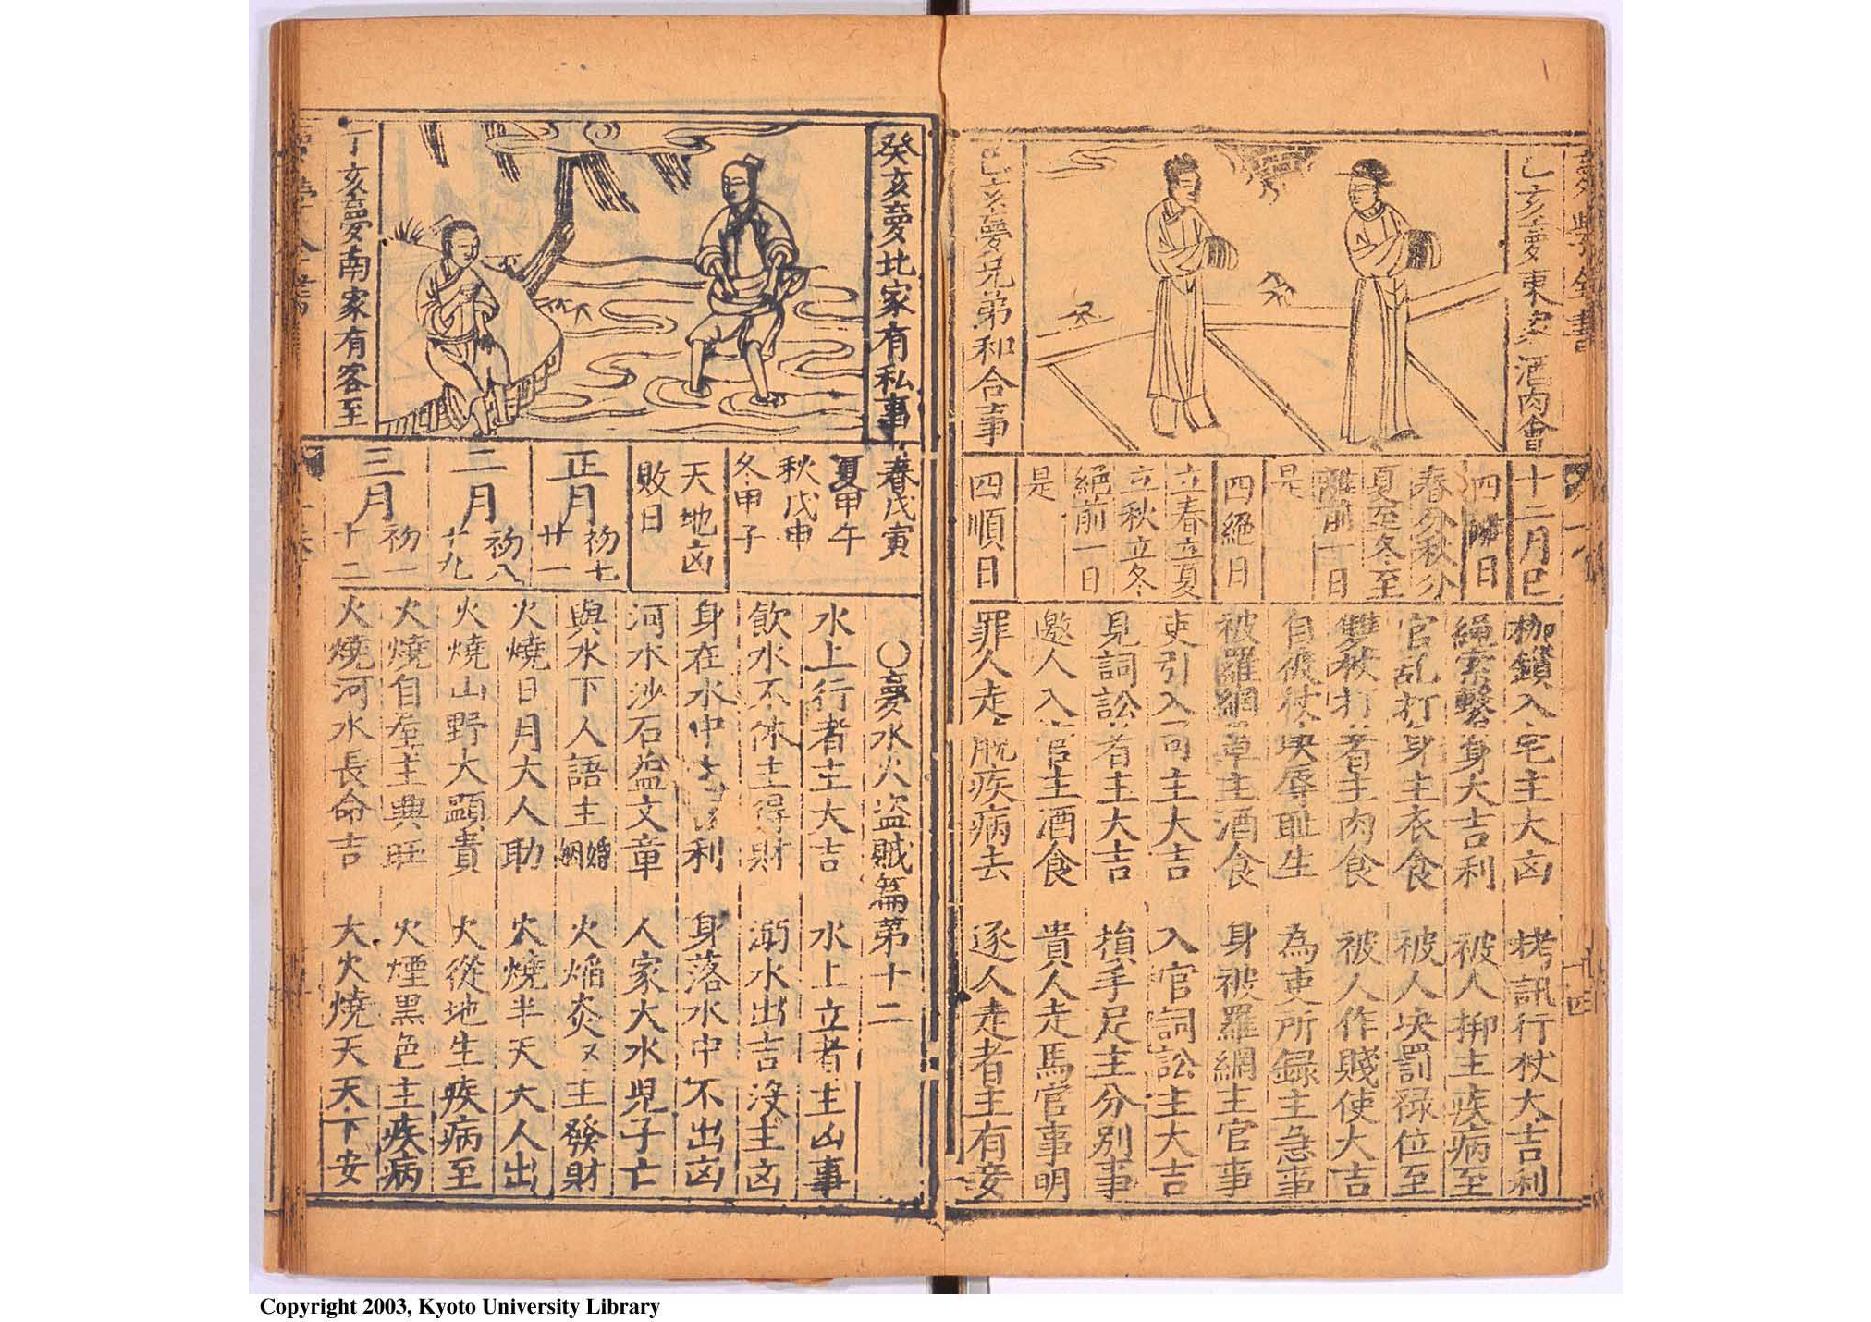 乙亥夢東家酒肉會
己亥夢兄弟和合事
十二月巳
四離日
春分秋分
夏至冬至
離前一日
是
四絕日
立春立夏
立秋立冬
絕前一日
是
四順日
枷鎖入宅主大凶 拷訊行杖大吉利
繩索繫身大吉利 被人枷主疾病至
官乱打身主衣食 被人决罰祿位至
雙杖打著主肉食 被人作賤使大吉
自被杖决辱耻生 為吏所錄主急事
被羅網罩主酒食 身被羅網主官事
吏引入司主大吉 入官詞訟主大吉
見詞訟者主大吉 損手足主分別事
邀人入官主酒食 貴人走馬官事明
罪人走脫疾病去 逐人走者主有妾
十四
癸亥夢北家有私事
丁亥夢南家有客至
春戊寅
夏甲午
秋戊申
冬甲子
天地凶
敗日
正月 初七 廿一
二月 初八 十九
三月 初一 十二
〇夢水火盗賊篇第十二
水上行者主大吉 水上立者主凶事
飲水不休主得財 溺水出吉沒主凶
身在水中 利 身落水中不出凶
河水沙石益文章 人家大水児子亡
與水下人語主婚姻 火焰炎々主發財
火燒日月大人助 火燒半天大人出
火燒山野大顯貴 火從地生疾病至
火燒自屋主興旺 火煙黑色主疾病
火燒河水長命吉 大火燒天天下安
Copyright 2003, Kyoto University Library